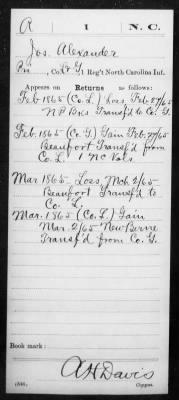 A 1 N.C.
Jos. Alexander
Pvt, Co. G, 1 Reg't North Carolina Inf.
Appears on Returns as follows:
Feb 1865 (Co. L.) Loss, Feb. 27/65
N.P. Transf'd to Co. G.
Feb. 1865 (Co. G.) Gain Feb. 27/65
Beaufort Transf'd from
Co. L. 1 NC Vols
Mar 1865. Loss, Mch. 2/65
Beaufort Transf'd to
Co. L.
Mar. 1865 (Co. L.) Gain
Mar. 2/65 New Berne
Transf'd from Co. G.
Book mark:
A H Davis
(546) Copyist.